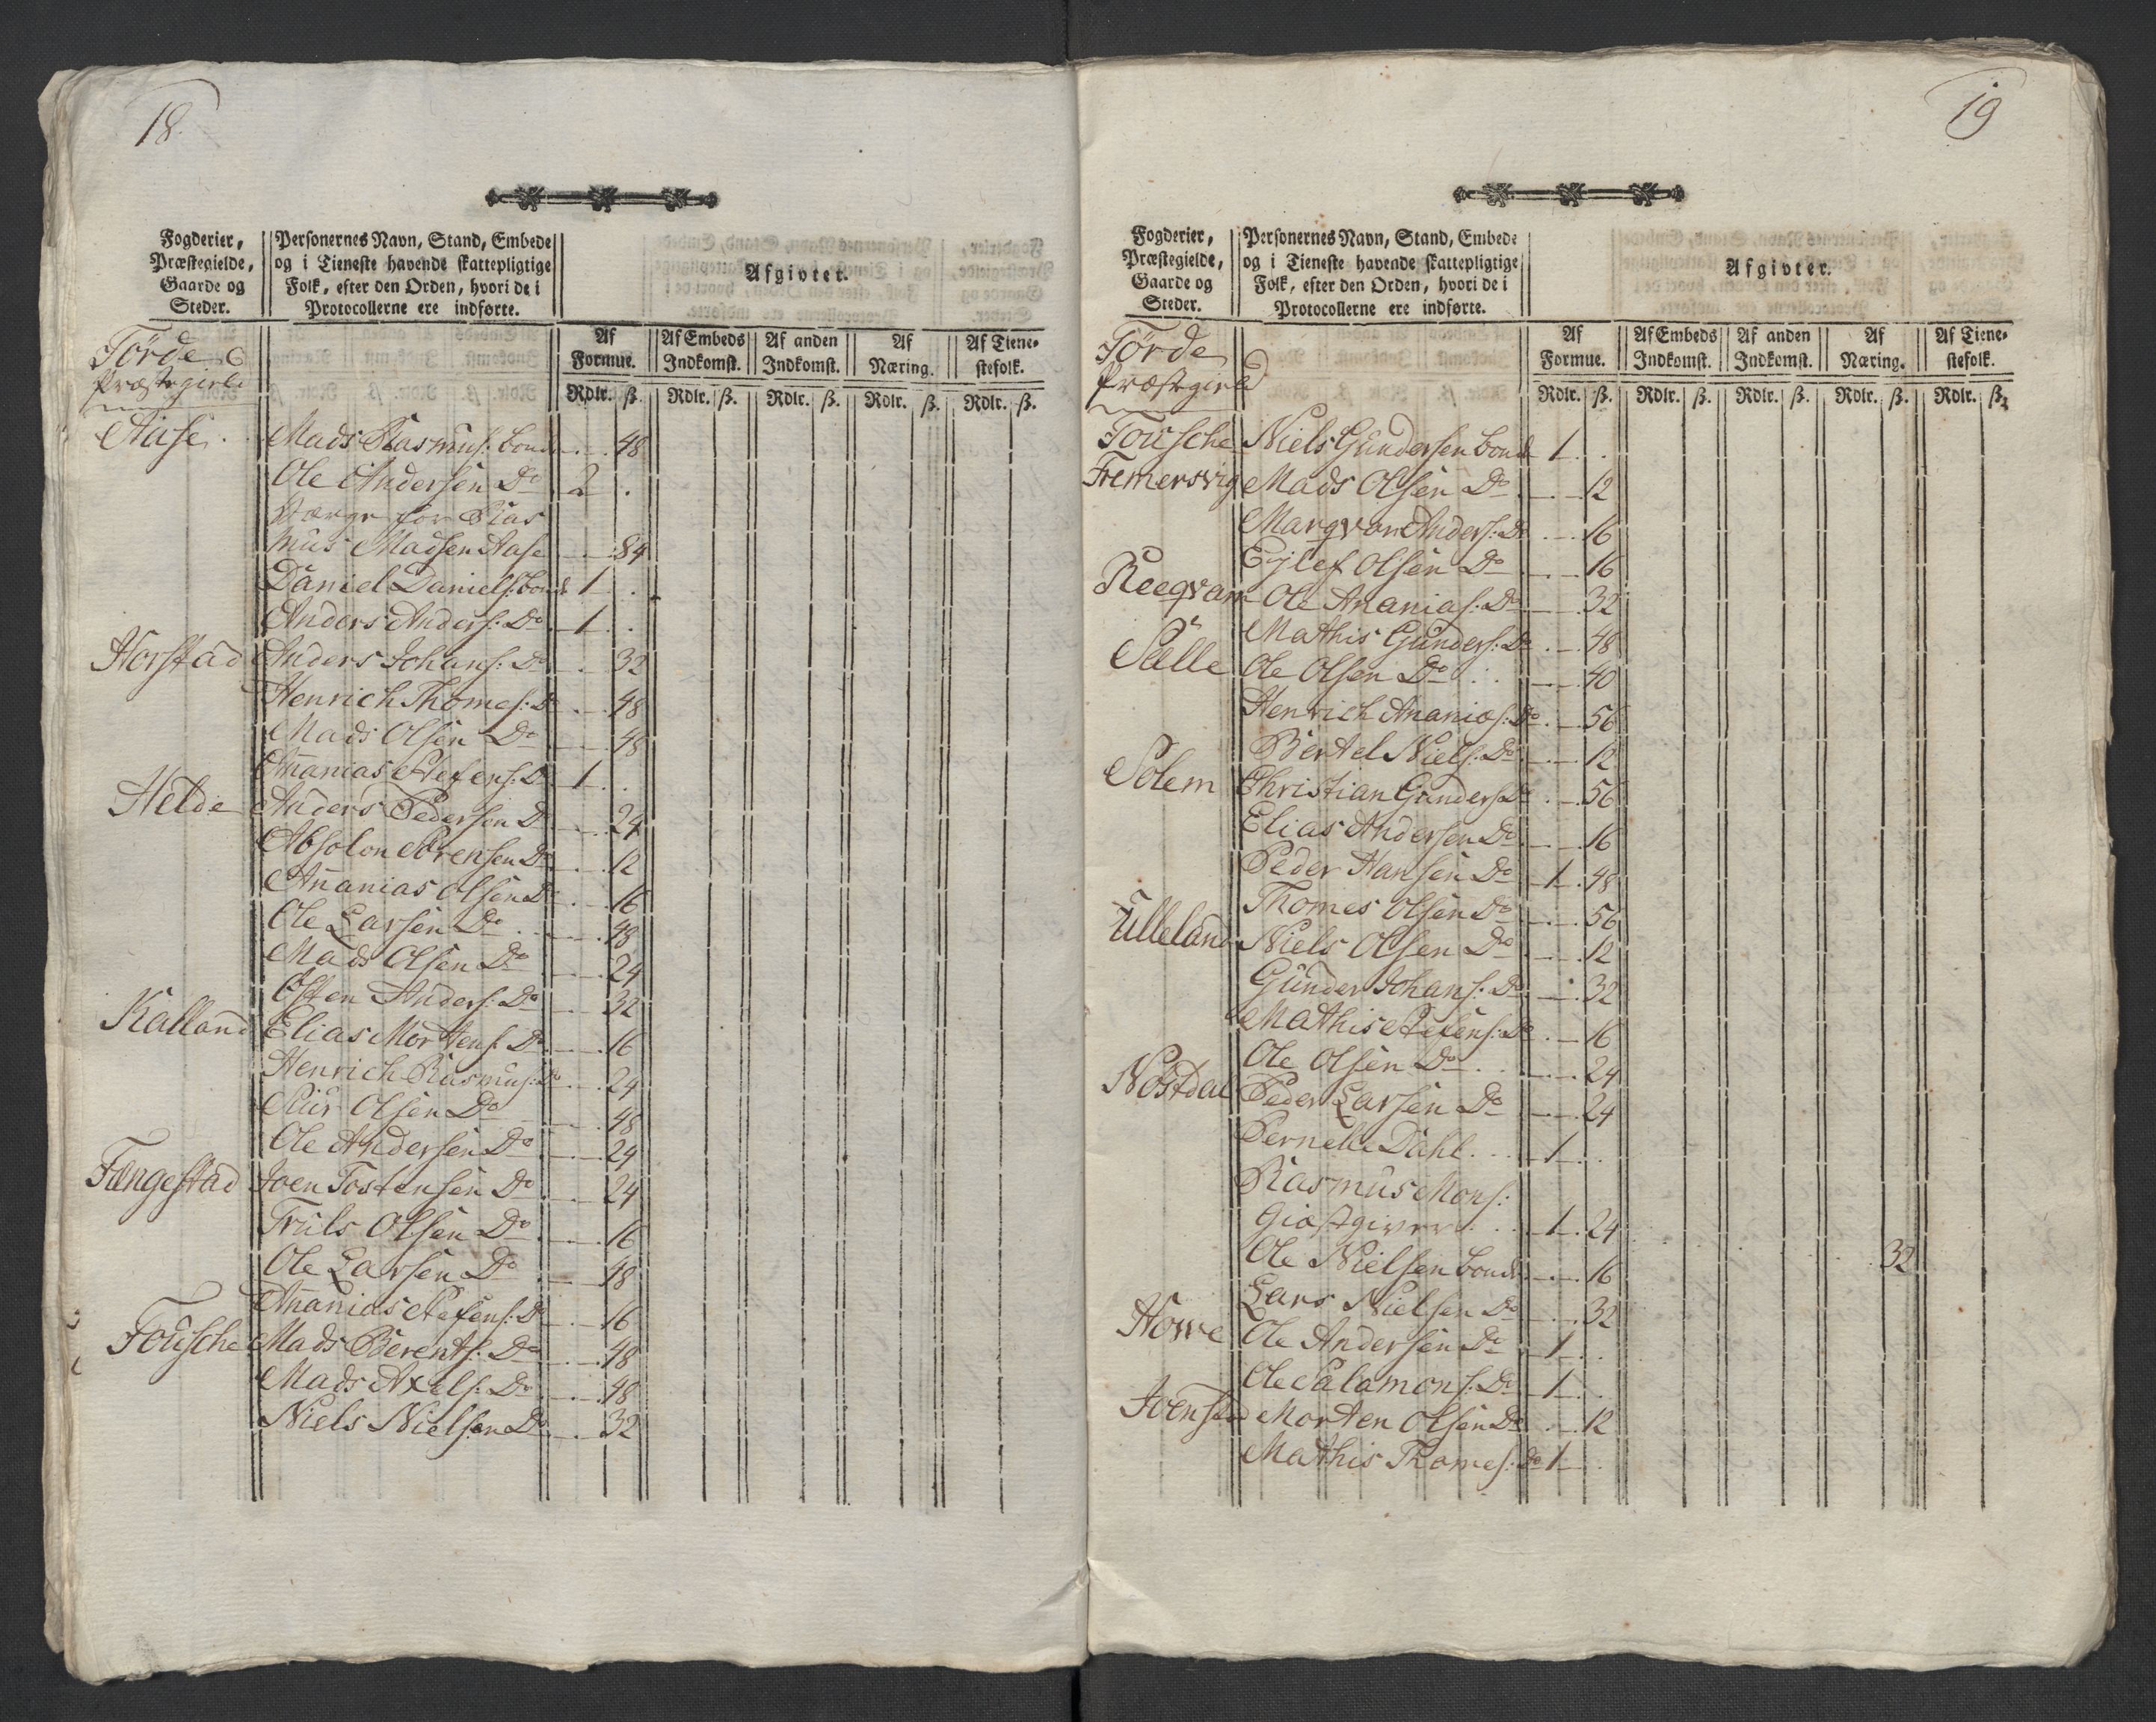 18.
Fogderier,
Præstegielde,
Gaarde og
Steder.
Personernes Navn, Stand, Embede
og i Tieneste havende skattepligtige
Folk, efter den Orden, hvori de i
Protocollerne ere indførte.
Afgivter.
Af Formue. Af Embeds Indkomst. Af anden Indkomst. Af Næring. Af Tiene-stefolk.
Rdlr. ß. Rdlr. ß. Rdlr. ß. Rdlr. ß. Rdlr. ß.
Förde
Præstegield
Aase. Mads Rasmus: bonde 48
Ole Andersen Do 2
Værge for Ras
mus Madsen Aase 84
Daniel Daniels: bonde 1
Anders Anders: Do 1
Horstad Anders Johans: Do 32
Henrich Thomes: Do 48
Mads Olsen Do 48
Ananias Stefens: Do 1
Helde Anders Pedersen Do 24
Absolon Sörensen Do 12
Ananias Olsen Do 16
Ole Larsen Do 48
Mads Olsen Do 24
Östen Anders: Do 32
Kalland Elias Mortens: Do 16
Henrich Rasmus: Do 24
Siur Olsen Do 48
Ole Andersen Do 24
Fængestad Joen Tostensen Do 24
Truls Olsen Do 16
Ole Larsen Do 48
Ananias Stefens: Do 16
Fousche Mads Berents: Do 48
Mads Axels: Do 48
Niels Nielsen Do 32
19
Fogderier,
Præstegielde,
Gaarde og
Steder.
Personernes Navn, Stand, Embede
og i Tieneste havende skattepligtige
Folk, efter den Orden, hvori de i
Protocollerne ere indførte.
Afgivter.
Af Formue. Af Embeds Indkomst. Af anden Indkomst. Af Næring. Af Tiene-stefolk.
Rdlr. ß. Rdlr. ß. Rdlr. ß. Rdlr. ß. Rdlr. ß.
Förde
Præstegield
Fousche Niels Gundersen bonde 1
Fremersvig Mads Olsen Do 12
Marqvar Anders: Do 16
Ejlef Olsen Do 16
Reeqvam Ole Ananias: Do 32
Mathis Gunders: Do 48
Sælle Ole Olsen Do 40
Henrich Ananias: Do 56
Bertel Niels: Do 12
Solem Christian Gunders: Do 56
Elias Andersen Do 16
Peder Hansen Do 1 48
Thomes Olsen Do 56
Ulleland Niels Olsen Do 12
Gunder Johans: Do 32
Mathis Stefens: Do 16
Ole Olsen Do 24
Nöstdal Peder Larsen Do 24
Pernelle Dahl 1
Rasmus Mons:
Giæstgiver 1 24
Ole Nielsen bonde 16 32
Lars Nielsen Do 32
Howe Ole Andersen Do 1
Ole Salamons: Do 1
Joenstad Morten Olsen Do 12
Mathis Thomes: Do 1